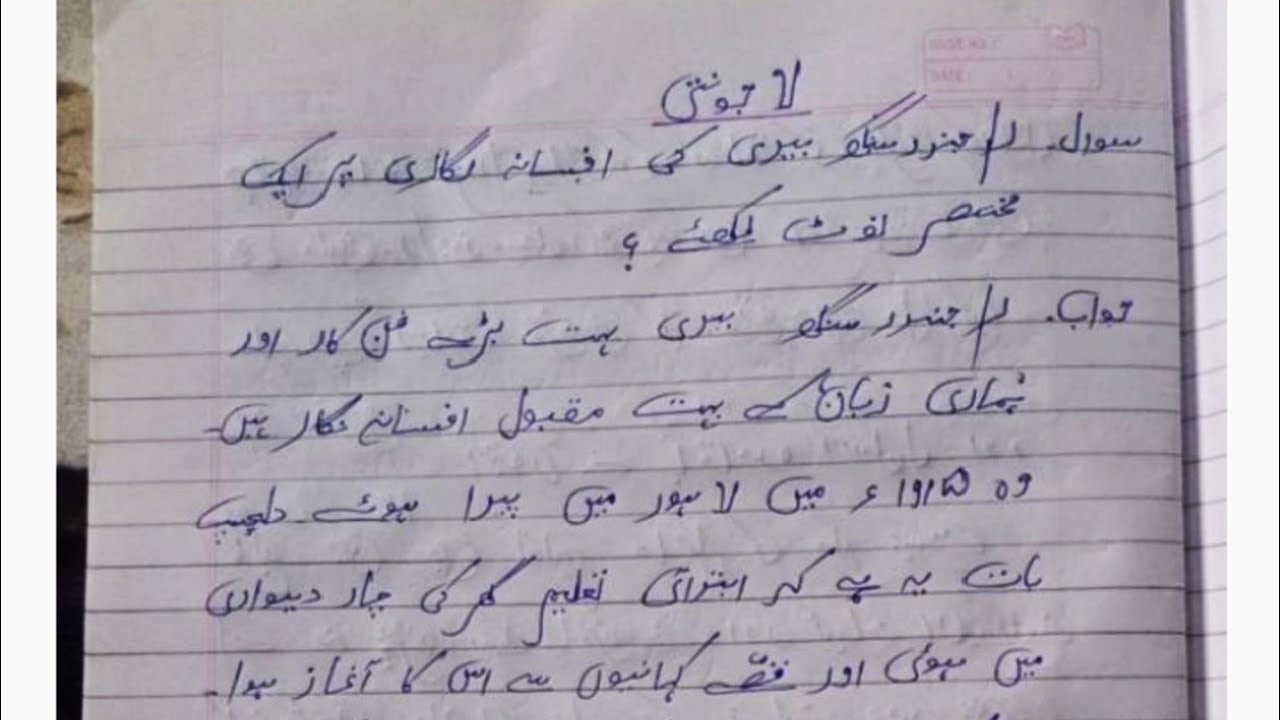 لاجونتی
سوال۔ راجندر سنگھ بیدی کی افسانہ نگاری پر ایک
مختصر نوٹ لکھئے ؟
جواب۔ راجندر سنگھ بیدی بہت بڑے فن کار اور
ہماری زبان کے بہت مقبول افسانے نگار ہیں۔
وہ ۱۹۱۵ء میں لاہور میں پیدا ہوئے۔ دلچسپ
بات یہ ہے کہ ابتدائی تعلیم گھر کی چار دیواری
میں ہوئی اور قصّے کہانیوں سے اس کا آغاز ہوا۔